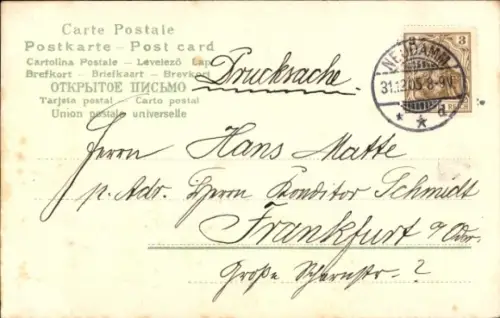 Carte Postale
Postkarte – Post card
Cartolina Postale – Levelező Lap
Brefkort – Briefkaart – Brevkort
ОТКРЫТОЕ ПИСЬМО
Tarjeta postal – Carta postal
Union postale universelle
Drucksache.
3
NEUDAMM
31.12.05. 8-9V.
* * d
Herrn Hans Matte
p. Adr. Herrn Konditor Schmidt
Frankfurt a/Oder.
Große Scharrnstr. 2